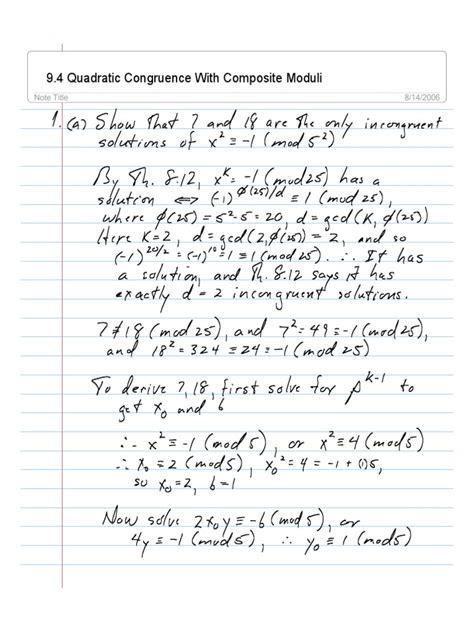 9.4 Quadratic Congruence With Composite Moduli
Note Title
8/14/2006
1. (a) Show that 7 and 18 are the only incongruent
solutions of x² ≡ -1 (mod 5²)
By Th. 8.12, xᵏ ≡ -1 (mod 25) has a
solution ⟺ (-1)^(φ(25)/d) ≡ 1 (mod 25),
where φ(25) = 5²-5 = 20, d = gcd(K, φ(25))
Here K=2, d = gcd(2, φ(25)) = 2, and so
(-1)^(20/2) = (-1)¹⁰ = 1 ≡ 1 (mod 25). ∴ It has
a solution, and Th. 8.12 says it has
exactly d = 2 incongruent solutions.
7 ≢ 18 (mod 25), and 7² = 49 ≡ -1 (mod 25),
and 18² = 324 ≡ 24 ≡ -1 (mod 25)
To derive 7, 18, first solve for p^(k-1) to
get x₀ and b
∴ x² ≡ -1 (mod 5), or x² ≡ 4 (mod 5)
∴ x₀ = 2 (mod 5), x₀² = 4 = -1 + (1)5,
so x₀ = 2, b = 1
Now solve 2x₀y ≡ -b (mod 5), or
4y ≡ -1 (mod 5), ∴ y₀ ≡ 1 (mod 5)